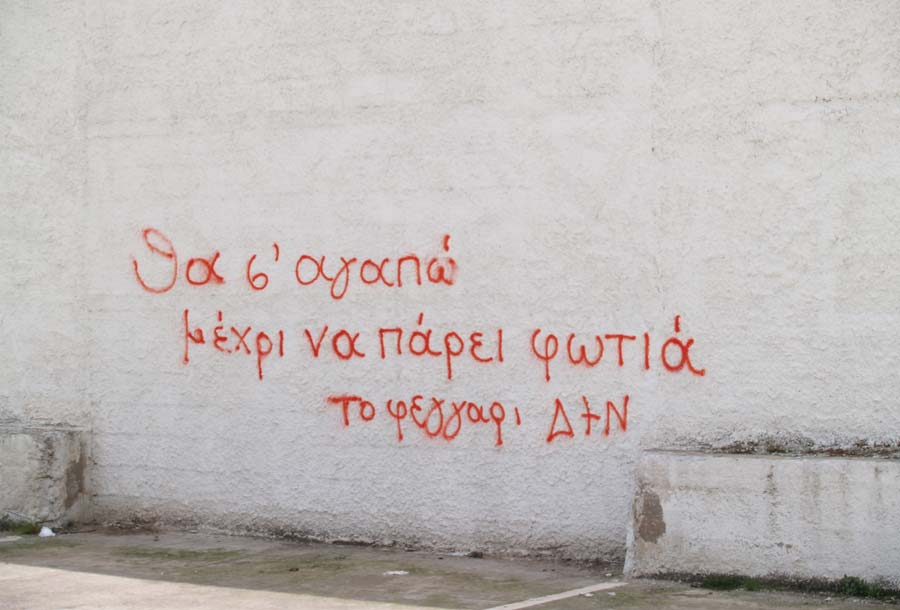 θα σ' αγαπώ
μέχρι να πάρει φωτιά
το φεγγαρι Δ+Ν